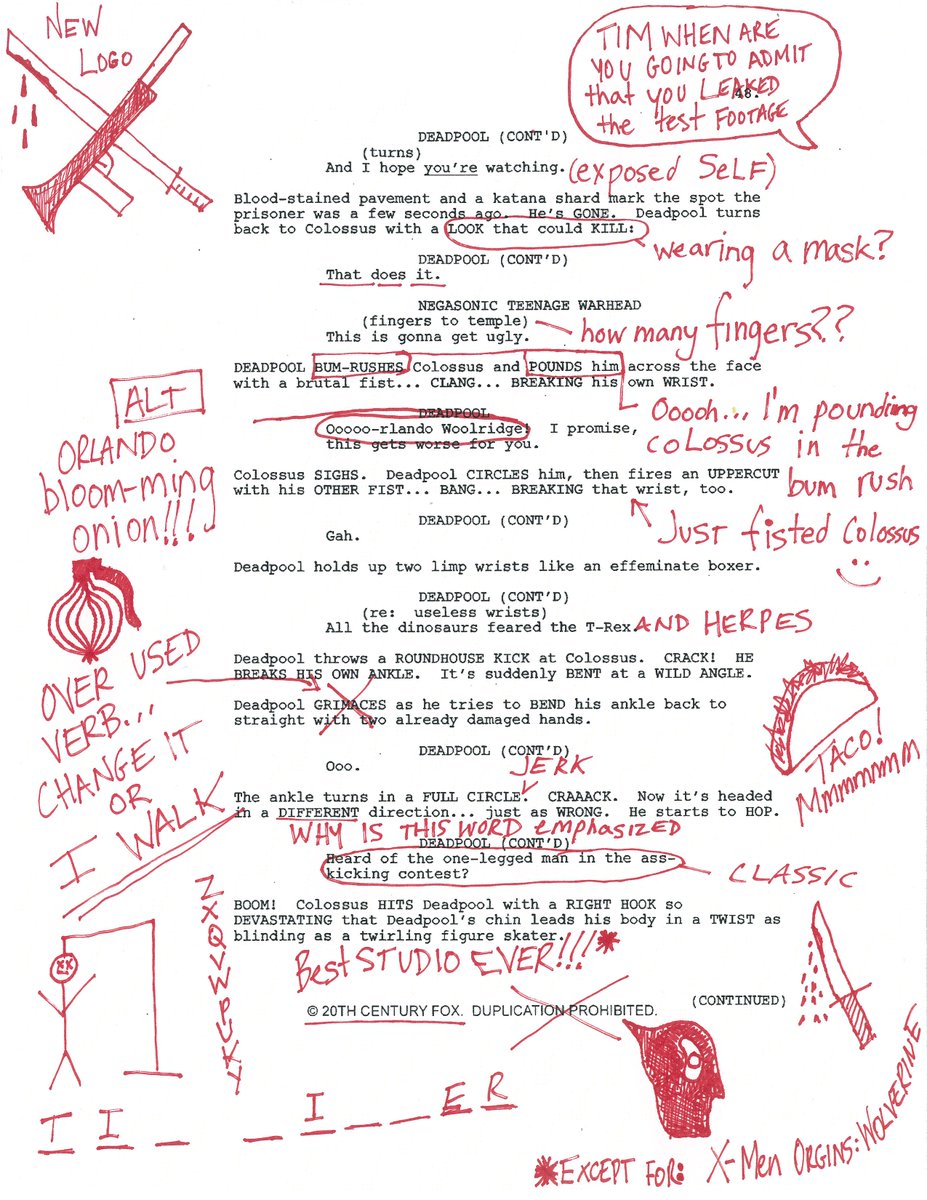 NEW
LOGO
TIM WHEN ARE
YOU GOING TO ADMIT
that you LEAKED
48.
the test FOOTAGE
DEADPOOL (CONT'D)
(turns)
And I hope you're watching. (exposed SeLF)
Blood-stained pavement and a katana shard mark the spot the
prisoner was a few seconds ago. He's GONE. Deadpool turns
back to Colossus with a LOOK that could KILL:
wearing a mask?
DEADPOOL (CONT'D)
That does it.
NEGASONIC TEENAGE WARHEAD
(fingers to temple)
how many fingers??
This is gonna get ugly.
DEADPOOL BUM-RUSHES Colossus and POUNDS him across the face
with a brutal fist... CLANG... BREAKING his own WRIST.
Ooooh... I'm pounding
COLOSSUS in the
bum rush
DEADPOOL
Ooooo-rlando Woolridge! I promise,
this gets worse for you.
ALT
ORLANDO
bloom-ming
onion!!!!
Colossus SIGHS. Deadpool CIRCLES him, then fires an UPPERCUT
with his OTHER FIST... BANG... BREAKING that wrist, too.
Just fisted Colossus
DEADPOOL (CONT'D)
Gah.
Deadpool holds up two limp wrists like an effeminate boxer.
DEADPOOL (CONT'D)
(re: useless wrists)
All the dinosaurs feared the T-Rex. AND HERPES
Deadpool throws a ROUNDHOUSE KICK at Colossus. CRACK! HE
BREAKS HIS OWN ANKLE. It's suddenly BENT at a WILD ANGLE.
OVER USED
VERB...
CHANGE IT
OR
I WALK
Deadpool GRIMACES as he tries to BEND his ankle back to
straight with two already damaged hands.
TACO!
Mmmmmmm
DEADPOOL (CONT'D)
Ooo.
JERK
The ankle turns in a FULL CIRCLE. CRAAACK. Now it's headed
in a DIFFERENT direction... just as WRONG. He starts to HOP.
WHY IS THIS WORD emphasized
DEADPOOL (CONT'D)
Heard of the one-legged man in the ass-
kicking contest?
CLASSIC
BOOM! Colossus HITS Deadpool with a RIGHT HOOK so
DEVASTATING that Deadpool's chin leads his body in a TWIST as
blinding as a twirling figure skater.
Best STUDIO EVER!!!*
(CONTINUED)
© 20TH CENTURY FOX. DUPLICATION PROHIBITED.
ZXQVWPUKY
T I _ _ I _ _ E R
*EXCEPT FOR: X-Men ORGINS: WOLVERINE